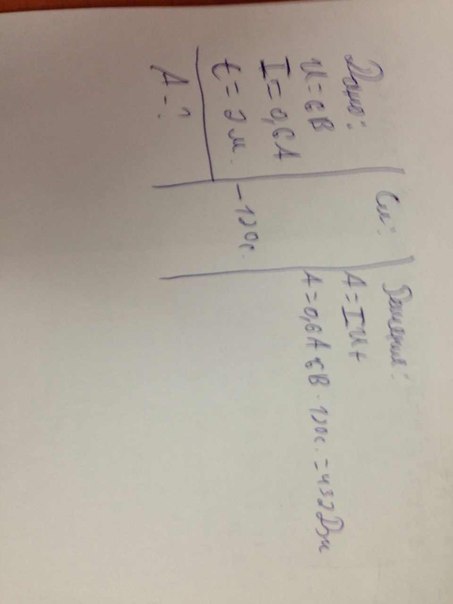 Дано:
U = 6В
I = 0,6А
t = 2 м.
А - ?
Си:
- 120с.
Решение:
А = IUt
А = 0,6А 6В · 120с. = 432 Дж